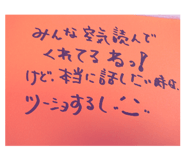 みんな空気読んで
くれてるねっ!
けど、本当に話したい時は、
ツーショするし